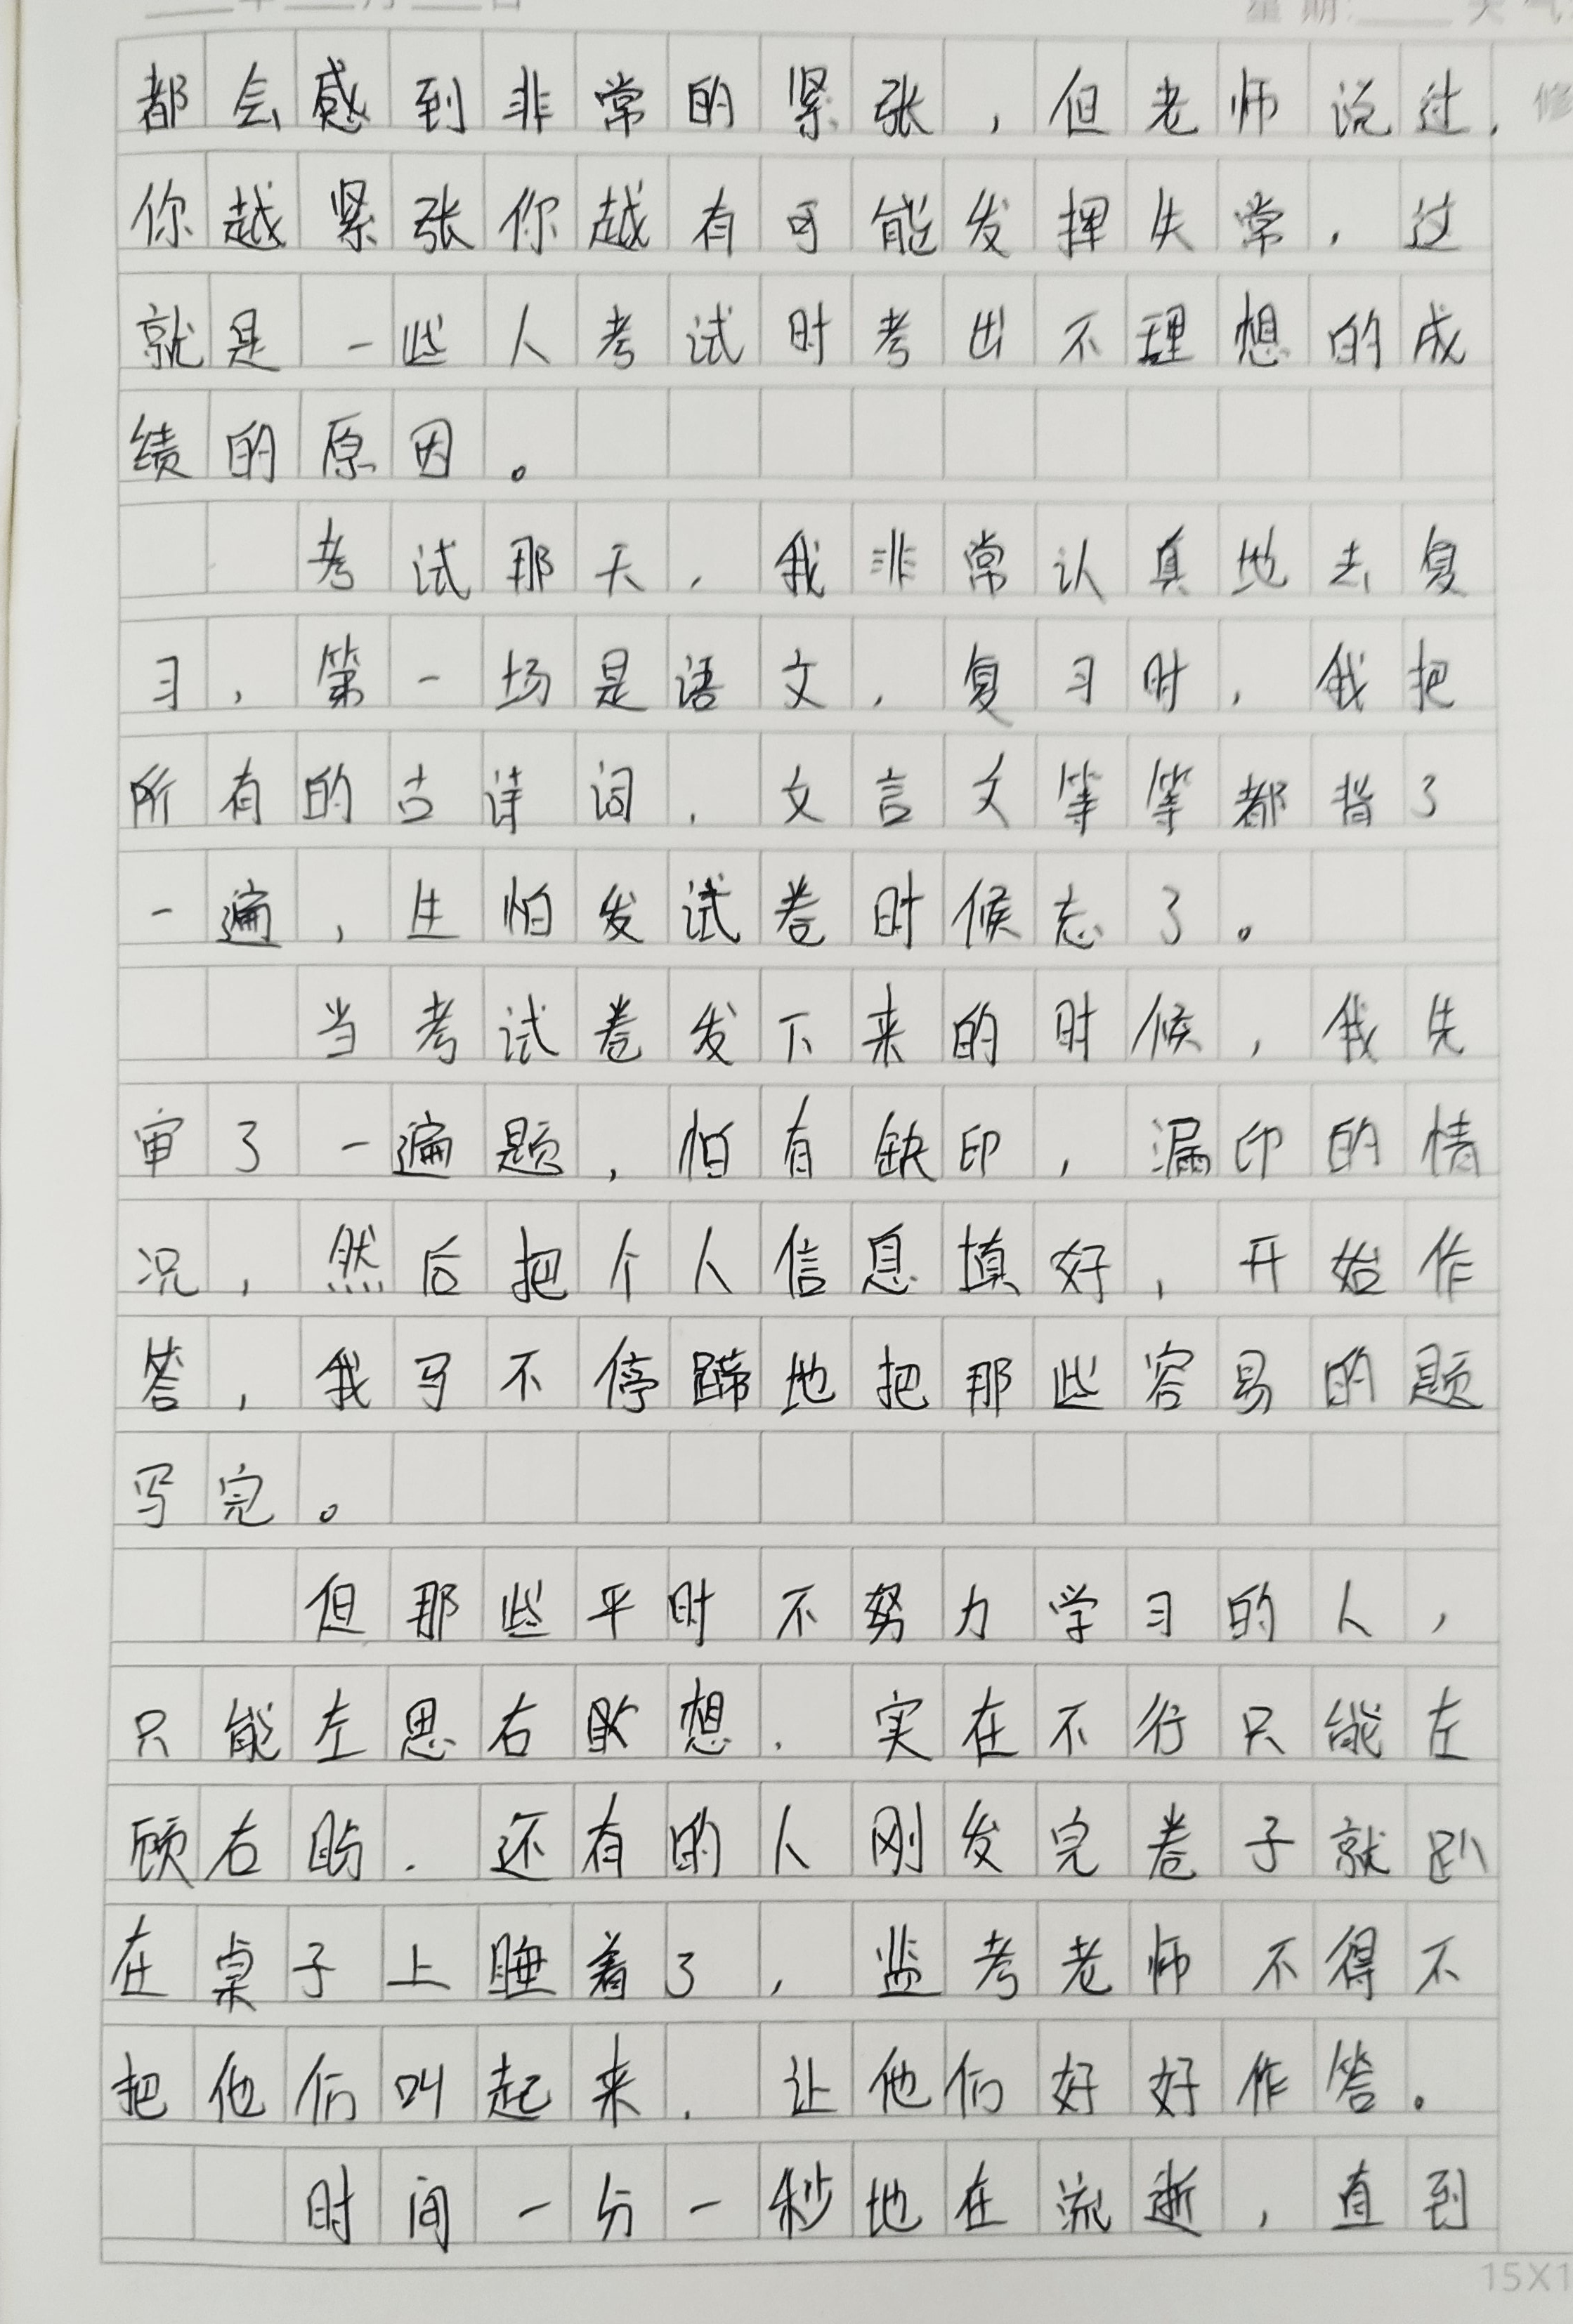 都会感到非常的紧张，但老师说过，
你越紧张你越有可能发挥失常，过
就是一些人考试时考出不理想的成
绩的原因。
考试那天，我非常认真地去复
习，第一场是语文，复习时，我把
所有的古诗词，文言文等等都背了
一遍，生怕发试卷时候忘了。
当考试卷发下来的时候，我先
审了一遍题，怕有缺印，漏印的情
况，然后把个人信息填好，开始作
答，我马不停蹄地把那些容易的题
写完。
但那些平时不努力学习的人，
只能左思右想，实在不行只能左
顾右盼，还有的人刚发完卷子就趴
在桌子上睡着了，监考老师不得不
把他们叫起来，让他们好好作答。
时间一分一秒地在流逝，直到
15X1